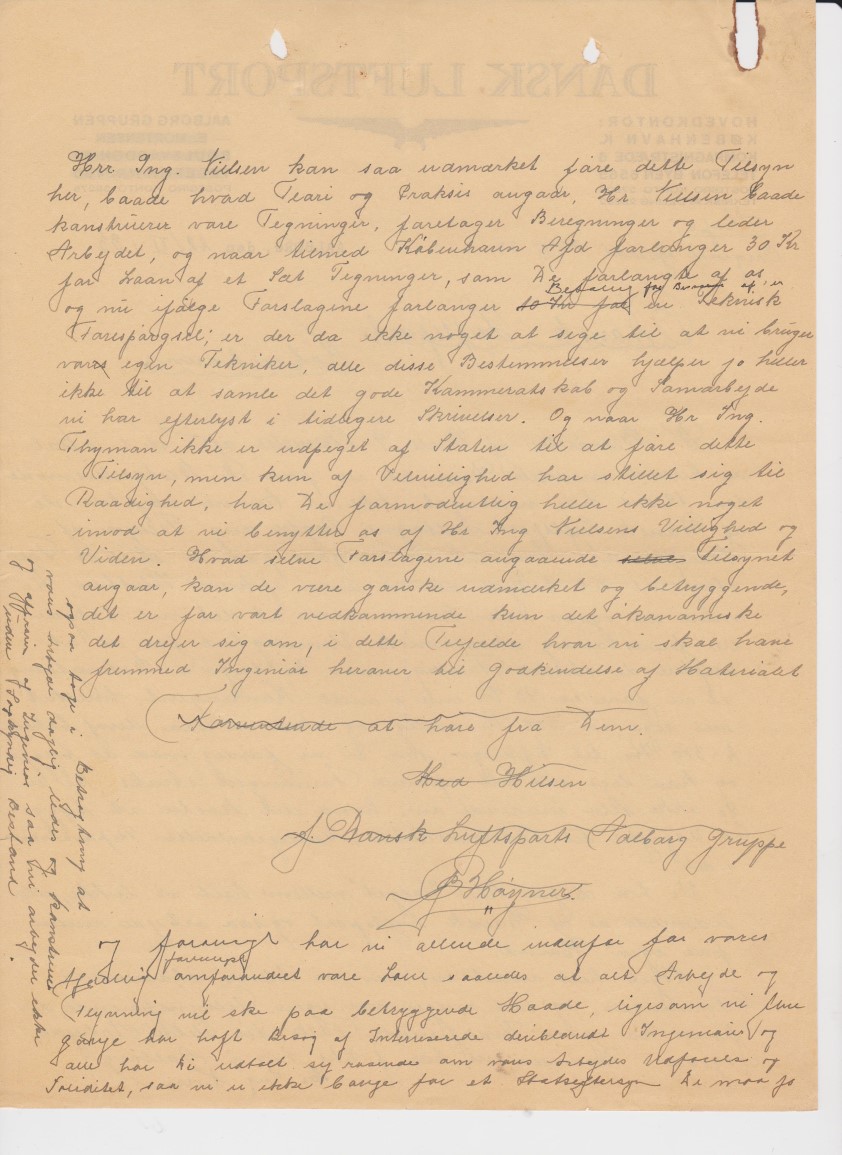 Hrr Ing. Nielsen kan saa udmærket føre dette Tilsyn
her, baade hvad Teori og Praksis angaar, Hr Nielsen baade
konstruerer vore Tegninger, foretager Beregninger og leder
Arbejdet, og naar tilmed København Afd forlanger 30 Kr
for Laan af et Sæt Tegninger, som De forlangte af os
Betaling for af
og nu ifølge Forslagene forlanger 10 Kr for en Teknisk
Forespørgsel; er der da ikke noget at sige til at vi bruger
vores egen Tekniker, alle disse Bestemmelser hjælper jo heller
ikke til at samle det gode Kammeratskab og Samarbejde
vi har efterlyst i tidligere Skrivelser. Og naar Hr Ing.
Thyman ikke er udpeget af Staten til at føre dette
Tilsyn, men kun af Velvillighed har stillet sig til
Raadighed, har De formodentlig heller ikke noget
imod at vi benytter os af Hr Ing Nielsens Villighed og
Viden. Hvad selve Forslagene angaaende selve Tilsynet
angaar, kan de være ganske udmærket og betryggende,
det er for vort vedkommende kun det økonomiske
det drejer sig om, i dette Tilfælde hvor vi skal have
fremmed Ingeniør herover til Godkendelse af Materialet
at høre fra Dem.
Med Hilsen
f. Dansk Luftsports Aalborg Gruppe
og forøvrigt har vi allerede indenfor for vores
forenings
Afdeling omforandret vore Love saaledes at alt Arbejde og
Flyvning vil ske paa betryggende Maade, ligesom vi flere
gange har haft Besøg af Interreserede deriblandt Ingeniører og
alle har de udtalt sig rosende om vores Arbejdes Udførelse og
Soliditet, saa vi er ikke bange for et Statseftersyn De maa jo
ogsaa tage i Betragtning at
vores Arbejde daglig ledes og
og af Ingeniør saa vi arbejder ikke
uden Sagkyndig Bistand.
DANSK LUFTSPORT
HOVEDKONTOR:
KØBENHAVN K
AALBORG GRUPPEN